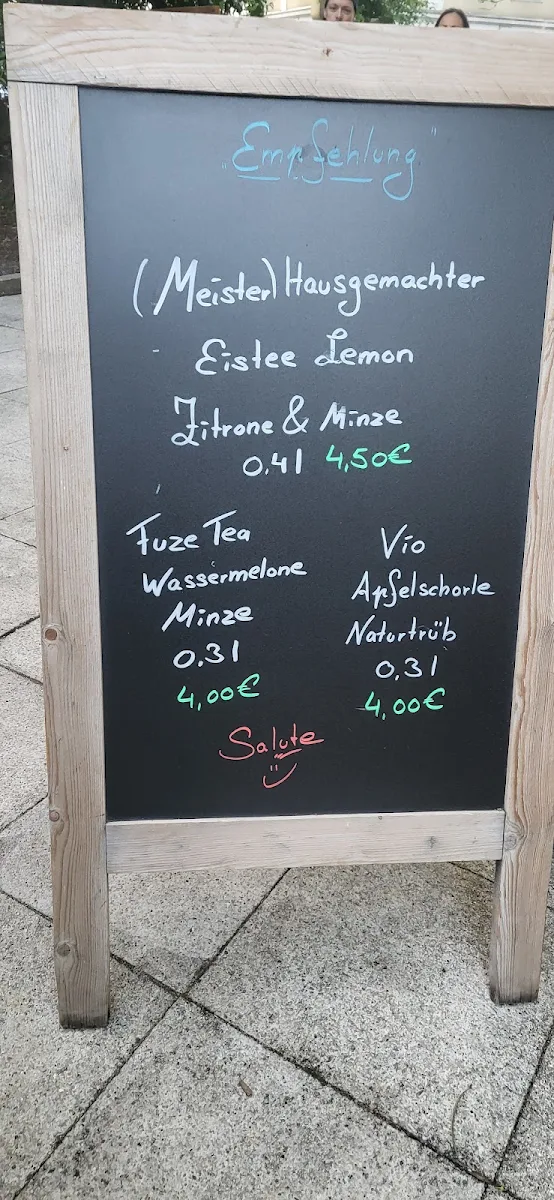 "Empfehlung"
(Meister) Hausgemachter
- Eistee Lemon
Zitrone & Minze
0,4l 4,50€
Fuze Tea
Wassermelone
Minze
0,3l
4,00€
Vio
Apfelschorle
Naturtrüb
0,3l
4,00€
Salute